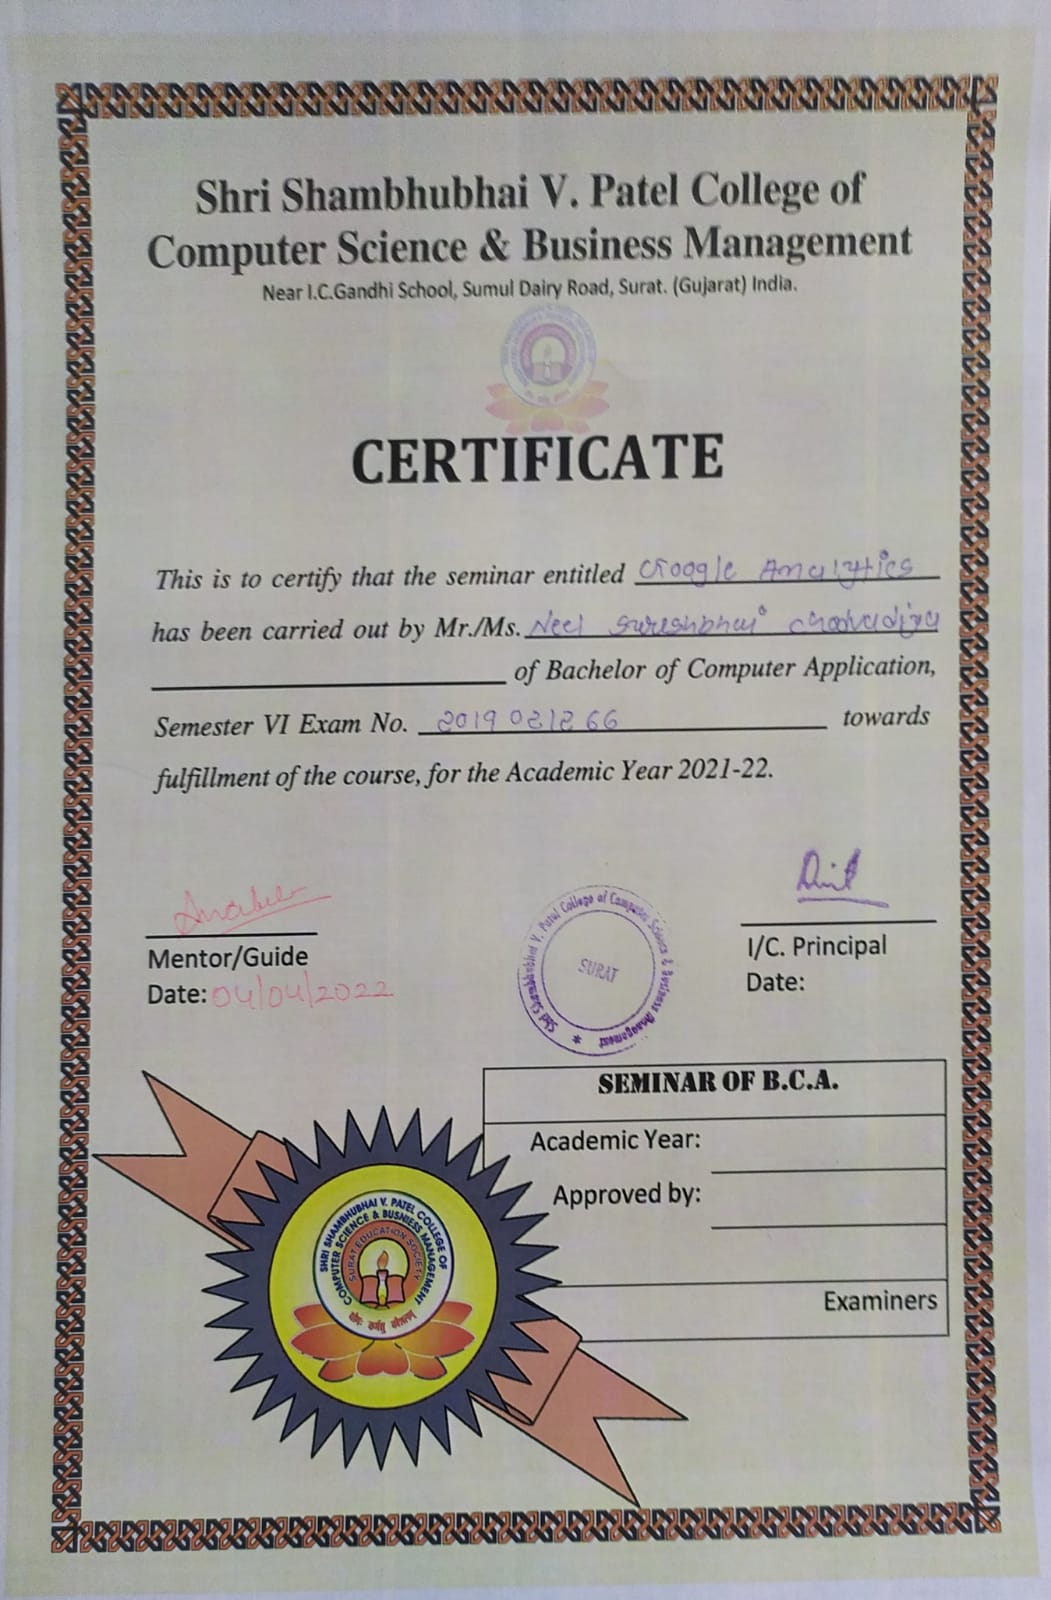 Shri Shambhubhai V. Patel College of
Computer Science & Business Management
Near I.C.Gandhi School, Sumul Dairy Road, Surat. (Gujarat) India.
CERTIFICATE
This is to certify that the seminar entitled Google Analytics
has been carried out by Mr./Ms. Neel Sureshbhai Chodvadiya
of Bachelor of Computer Application,
Semester VI Exam No. 2019021266 towards
fulfillment of the course, for the Academic Year 2021-22.
Mentor/Guide
Date: 04/04/2022
Shri Shambhubhai V. Patel College of Computer Science & Business Management
SURAT
I/C. Principal
Date:
SEMINAR OF B.C.A.
Academic Year:
Approved by:
Examiners
SHRI SHAMBHUBHAI V. PATEL COLLEGE OF
COMPUTER SCIENCE & BUSNIESS MANAGEMENT
SURAT EDUCATION SOCIETY
योगः कर्मसु कौशलम्